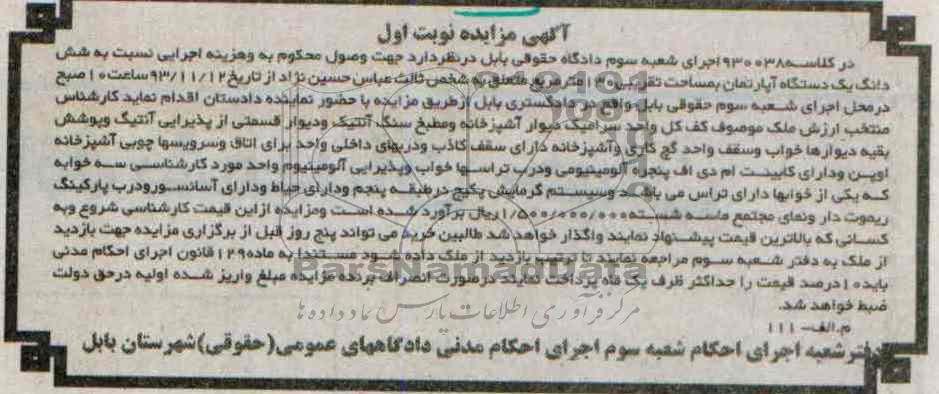 آگهی مزایده نوبت اول
در کلاسه ۹۳۰۰۳۸ اجرای شعبه سوم دادگاه حقوقی بابل در نظر دارد جهت وصول محکوم به وهزینه اجرایی نسبت به شش
دانگ یک دستگاه آپارتمان بمساحت تقریبی ۱۳۰ متر مربع متعلق به شخص ثالث عباس حسین نژاد از تاریخ ۹۳/۱۱/۱۲ ساعت ۱۰ صبح
در محل اجرای شعبه سوم حقوقی بابل واقع در دادگستری بابل از طریق مزایده با حضور نماینده دادستان اقدام نماید کارشناس
منتخب ارزش ملک موصوف کف کل واحد سرامیک دیوار آشپزخانه ومطبخ سنگ آنتیک ودیوار قسمتی از پذیرایی آنتیگ وپوشش
بقیه دیوارها خواب وسقف واحد گچ کاری وآشپزخانه دارای سقف کاذب ودربهای داخلی واحد برای اتاق وسرویسها چوبی آشپزخانه
اوپن ودارای کابینت ام دی اف پنجره آلومینیومی ودرب تراسها خواب وپذیرایی آلومینیوم واحد مورد کارشناسی سه خوابه
که یکی از خوابها دارای تراس می باشد وسیستم گرمایش پکیج در طبقه پنجم ودارای حیاط ودارای آسانسورودرب پارکینگ
ریموت دار ونمای مجتمع ماسه شسته ۱/۵۰۰/۰۰۰/۰۰۰ ریال برآورد شده است ومزایده از این قیمت کارشناسی شروع وبه
کسانی که بالاترین قیمت پیشنهاد نمایند واگذار خواهد شد طالبین خرید می تواند پنج روز قبل از برگزاری مزایده جهت بازدید
از ملک به دفتر شعبه سوم مراجعه نمایند تا ترتیب بازدید از ملک داده شود مستندا به ماده ۱۲۹ قانون اجرای احکام مدنی
باید ۱۰ درصد قیمت را حداکثر ظرف یک ماه پرداخت نمایند در صورت انصراف برنده مزایده مبلغ واریز شده اولیه در حق دولت
ضبط خواهد شد.
م.الف- ۱۱۱
دفتر شعبه اجرای احکام شعبه سوم اجرای احکام مدنی دادگاههای عمومی (حقوقی) شهرستان بابل
ParsNamadData
مرکز فرآوری اطلاعات پارس نماد داده ها